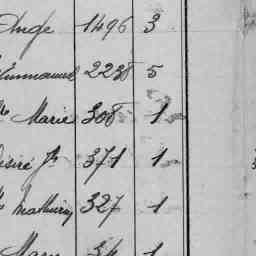 Ange 1496 3
Emmanuel 2238 5
Marie 308 1
Désiré Jh 371 1
Mathurin 327 1
Marie 34 1